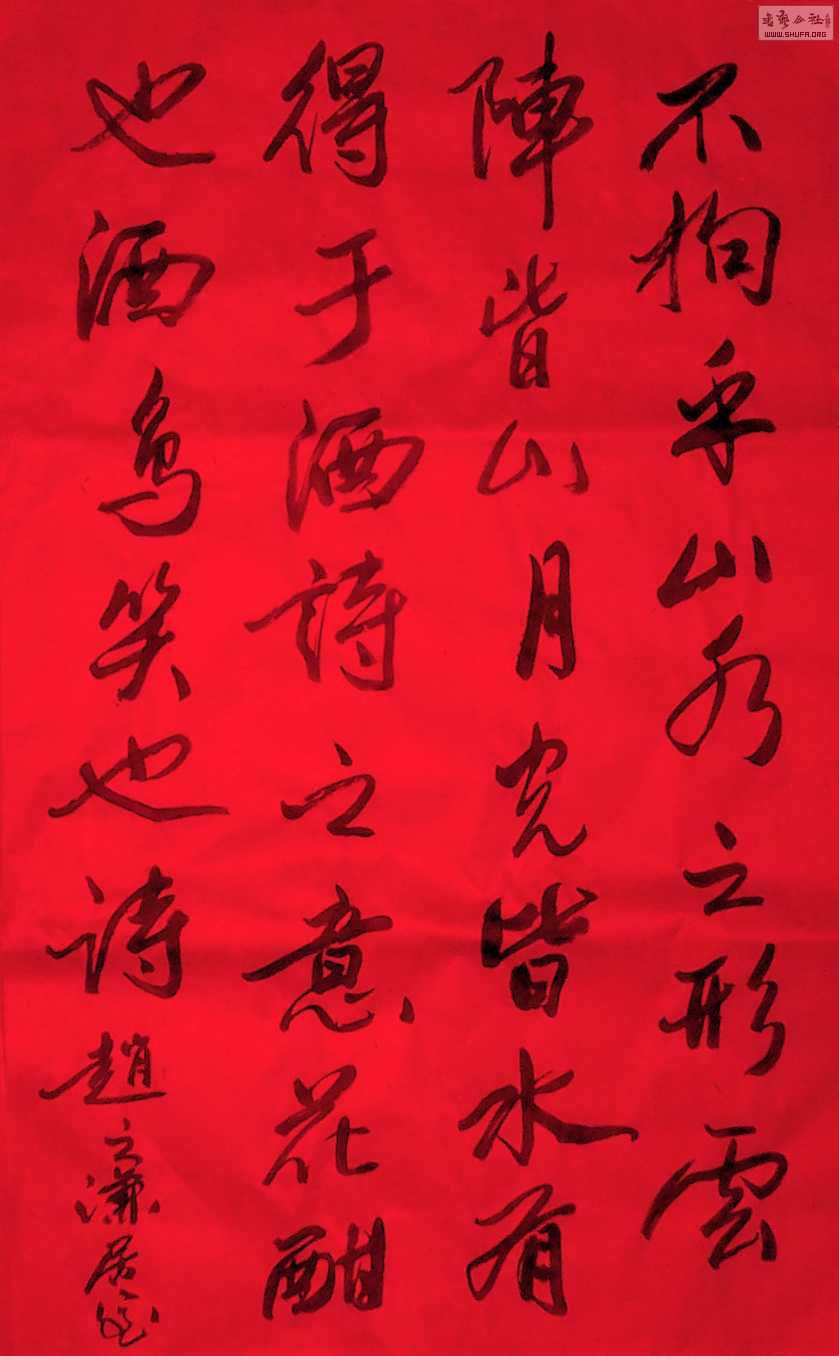 不拘乎山水之形雲
陣皆山月光皆水有
得于酒詩之意花酣
也酒鸟笑也詩
趙之濂居
書藝公社
WWW.SHUFA.ORG